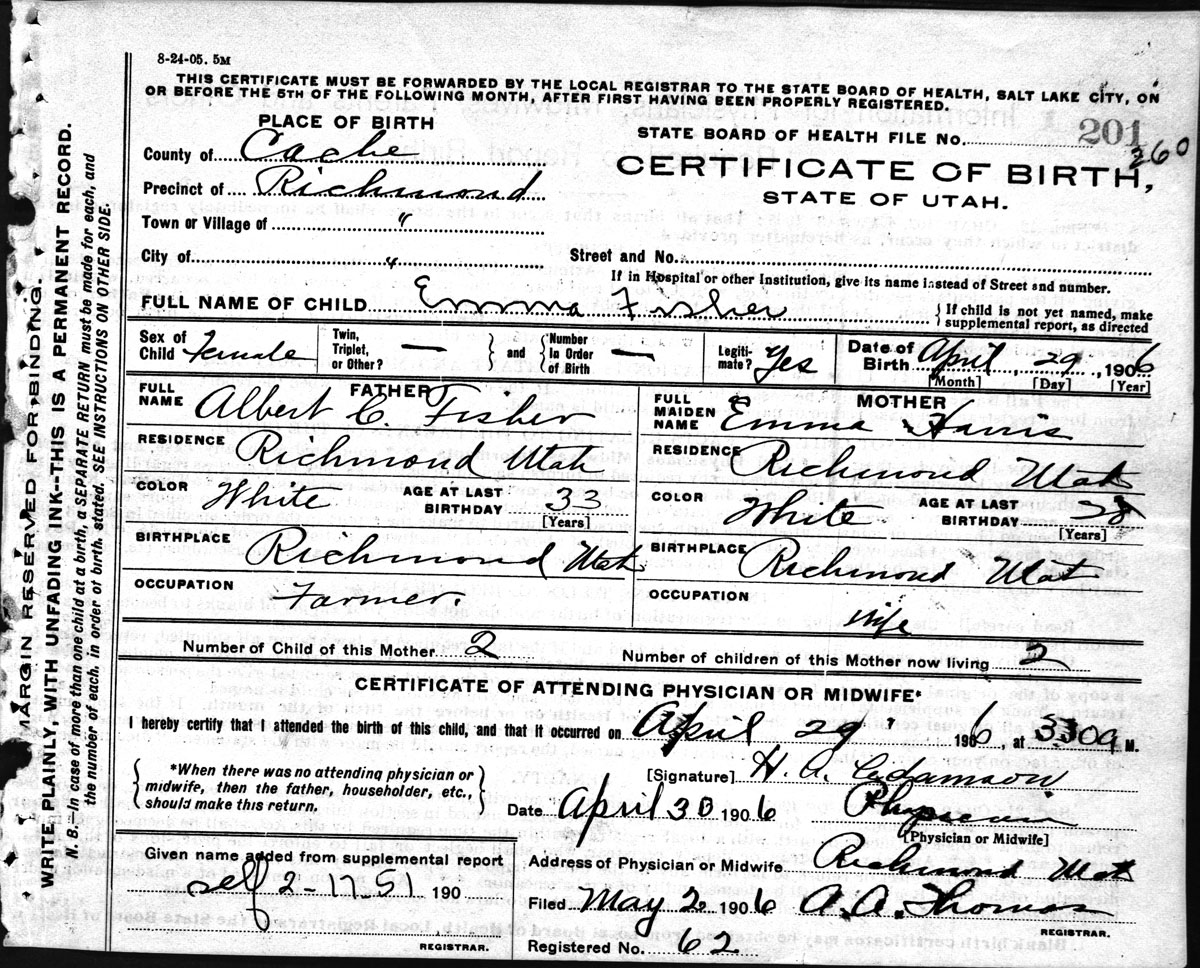 8-24-05. 5M
THIS CERTIFICATE MUST BE FORWARDED BY THE LOCAL REGISTRAR TO THE STATE BOARD OF HEALTH, SALT LAKE CITY, ON
OR BEFORE THE 5TH OF THE FOLLOWING MONTH, AFTER FIRST HAVING BEEN PROPERLY REGISTERED.
PLACE OF BIRTH
STATE BOARD OF HEALTH FILE No. 201
260
County of Cache
CERTIFICATE OF BIRTH,
STATE OF UTAH.
Precinct of Richmond
Town or Village of "
City of "
Street and No.
If in Hospital or other Institution, give its name instead of Street and number.
FULL NAME OF CHILD Emma Fisher
{If child is not yet named, make
supplemental report, as directed
Sex of
Child Female
Twin,
Triplet,
or Other? —
} and {
Number
In Order
of Birth —
Legiti-
mate? Yes
Date of
Birth April, 29, 1906
[Month] [Day] [Year]
FATHER
FULL
NAME Albert C. Fisher
MOTHER
FULL
MAIDEN
NAME Emma Harris
RESIDENCE Richmond Utah
RESIDENCE Richmond Utah
COLOR White
AGE AT LAST
BIRTHDAY 33
[Years]
COLOR White
AGE AT LAST
BIRTHDAY
[Years]
BIRTHPLACE Richmond Utah
BIRTHPLACE Richmond Utah
OCCUPATION Farmer.
OCCUPATION
wife
Number of Child of this Mother 2
Number of children of this Mother now living 2
CERTIFICATE OF ATTENDING PHYSICIAN OR MIDWIFE*
I hereby certify that I attended the birth of this child, and that it occurred on April 29 1906, at M.
{*When there was no attending physician or
midwife, then the father, householder, etc.,
should make this return.}
[Signature] H. A. Adamson
Date April 30 1906 Physician
[Physician or Midwife]
Given name added from supplemental report
self 2-17 51 190
REGISTRAR.
Address of Physician or Midwife Richmond Utah
Filed May 2 1906 A. A. Thomas
REGISTRAR.
Registered No. 62
MARGIN RESERVED FOR BINDING.
WRITE PLAINLY, WITH UNFADING INK--THIS IS A PERMANENT RECORD.
N. B. In case of more than one child at a birth, a SEPARATE RETURN must be made for each, and
the number of each, in order of birth, stated. SEE INSTRUCTIONS ON OTHER SIDE.